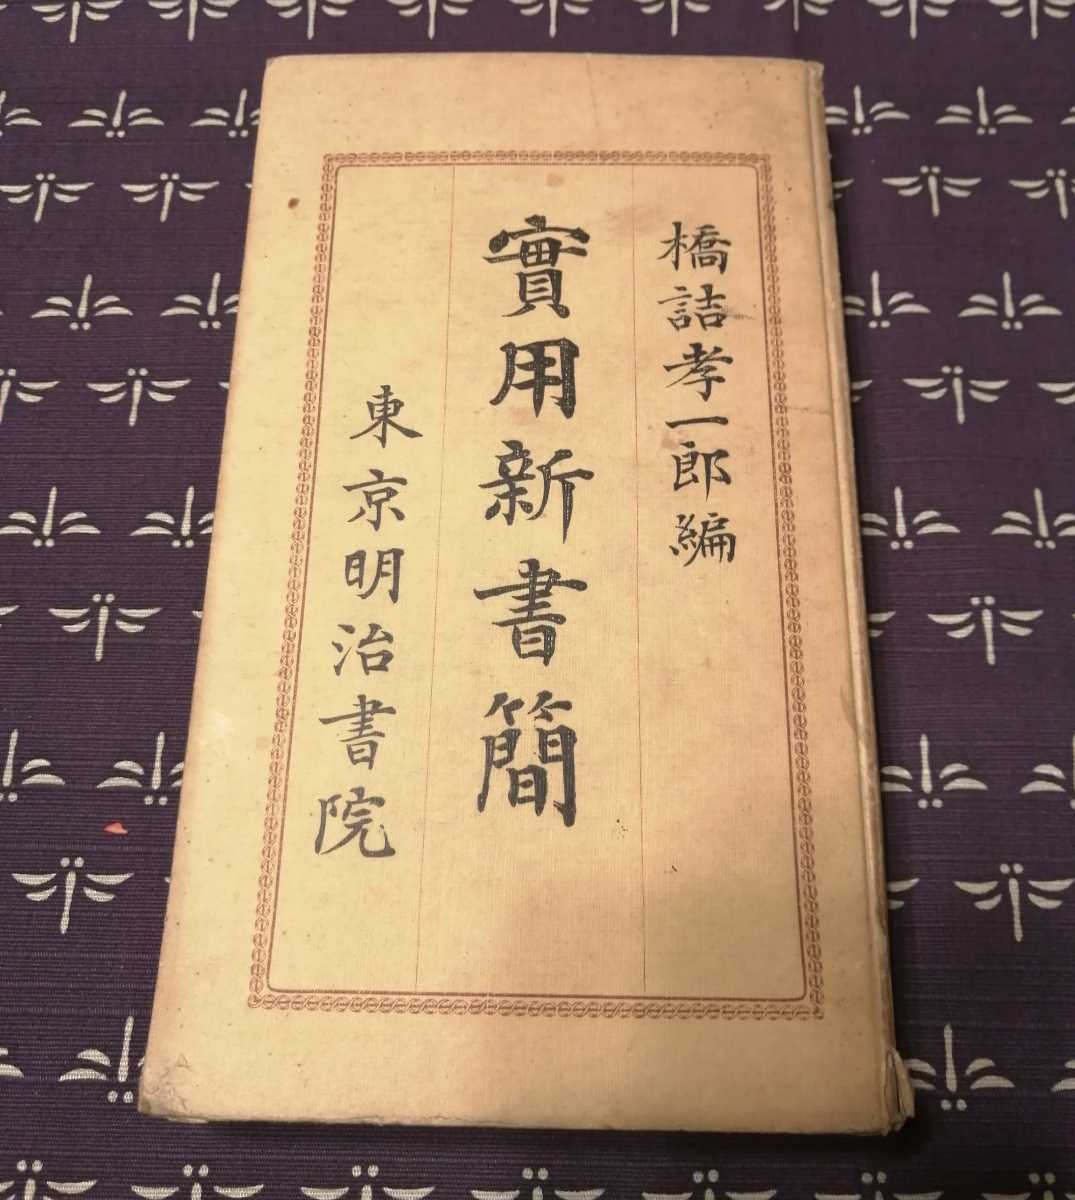 橋詰孝一郎編
實用新書簡
東京明治書院